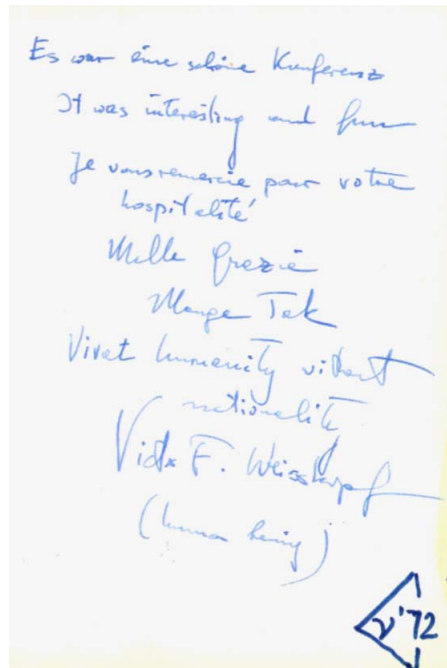 Es war eine schöne Konferenz
It was interesting and fun
Je vous remercie pour votre
hospitalité
Mille Grazie
Mange Tak
Vivat humanity without
nationality
Victor F. Weisskopf
(human being)
ν'72